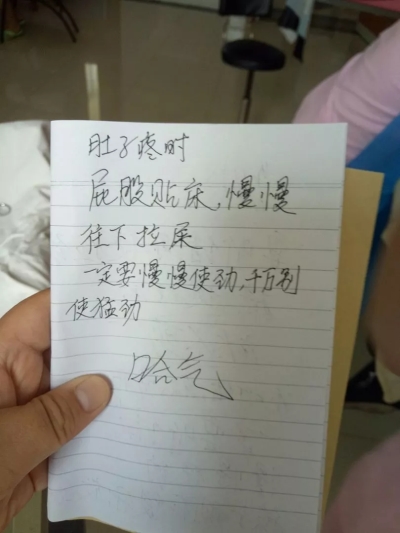 肚子疼时
屁股贴床,慢慢
往下拉屎
一定要慢慢使劲,千万别
使猛劲
哈气